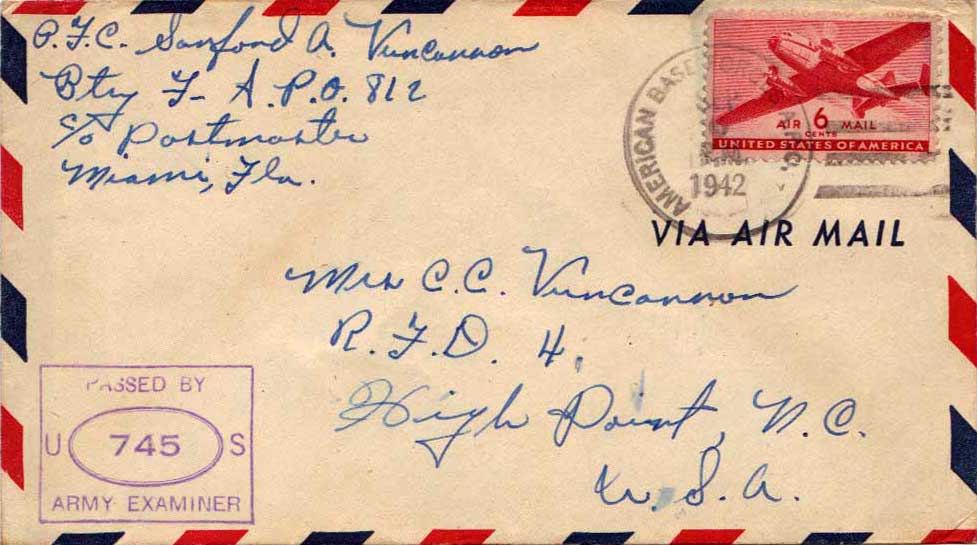 P.F.C. Sanford A. Vuncannon
Btry F- A.P.O. 812
c/o Postmaster
Miami, Fla.
AMERICAN BASE
A.P.O.
1942
AIR 6 MAIL
CENTS
UNITED STATES OF AMERICA
VIA AIR MAIL
Mrs C.C. Vuncannon
R.F.D. 4.
High Point, N.C.
U.S.A.
PASSED BY
U 745 S
ARMY EXAMINER